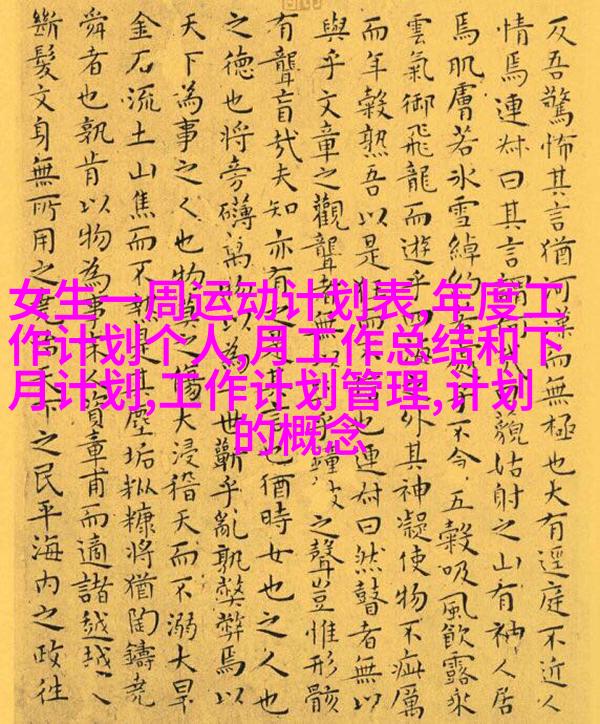 女生一周运动计划表,年度工
作计划个人,月工作总结和下
月计划,工作计划管理,计划
的概念
反吾驚怖其言猶河漢而無極也大有逕庭不近人
情焉連叔曰其言謂何 藐姑射之山有神人居
焉肌膚若冰雪綽約 不 五穀吸風飲露乘
雲氣御飛龍而遊乎四 外其神凝使物不疵厲
而年穀熟吾以是狂 也連叔曰然瞽者無以
與乎文章之觀聾者無以 乎鍾 之聲豈惟形骸
有聾盲哉夫知亦有之 言也猶時女也之人也
之德也將旁礴萬物以 世蘄乎亂孰弊弊焉以
天下為事之人也物莫之傷大浸稽天而不溺大旱
金石流土山焦而不熱是其塵垢粃糠將猶陶鑄堯
舜者也孰肯以物為事宋人資章甫而適諸越越人
斷髮文身無所用之堯 天下之民平海内之政往